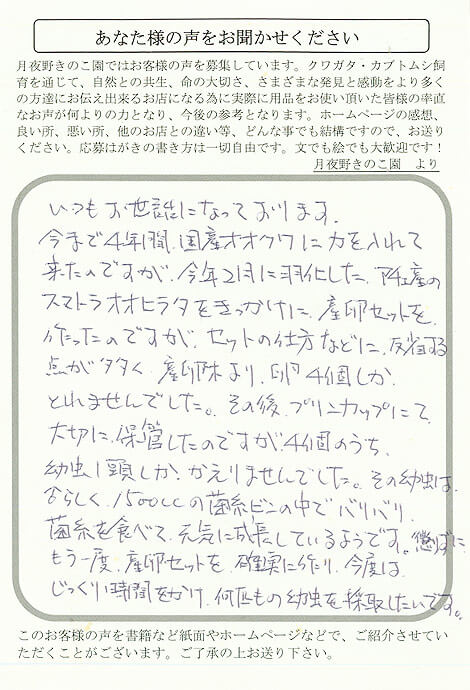 あなた様の声をお聞かせください
月夜野きのこ園ではお客様の声を募集しています。クワガタ・カブトムシ飼
育を通じて、自然との共生、命の大切さ、さまざまな発見と感動をより多く
の方達にお伝え出来るお店になる為に実際に用品をお使い頂いた皆様の率直
なお声が何よりの力となり、今後の参考となります。ホームページの感想、
良い所、悪い所、他のお店との違い等、どんな事でも結構ですので、お送り
ください。応募はがきの書き方は一切自由です。文でも絵でも大歓迎です！
月夜野きのこ園　より
いつもお世話になっております。
今まで4年間、国産オオクワに力を入れて
来たのですが、今年2月に羽化した、アチェ産の
スマトラオオヒラタをきっかけに、産卵セットを
作ったのですが、セットの仕方などに、反省する
点が多々く、産卵木より、卵4個しか
とれませんでした。その後、プリンカップにて
大切に、保管したのですが、4個のうち、
幼虫1頭しか、かえりませんでした。その幼虫は、
1500ccの菌糸ビンの中でバリバリ、
菌糸を食べて、元気に成長しているようです。懲りずに、
もう一度、産卵セットを、確実に作り、今度は、
じっくり時間をかけ、何匹もの幼虫を採取したいです。
このお客様の声を書籍など紙面やホームページなどで、ご紹介させてい
ただくことがございます。ご了承の上お送り下さい。